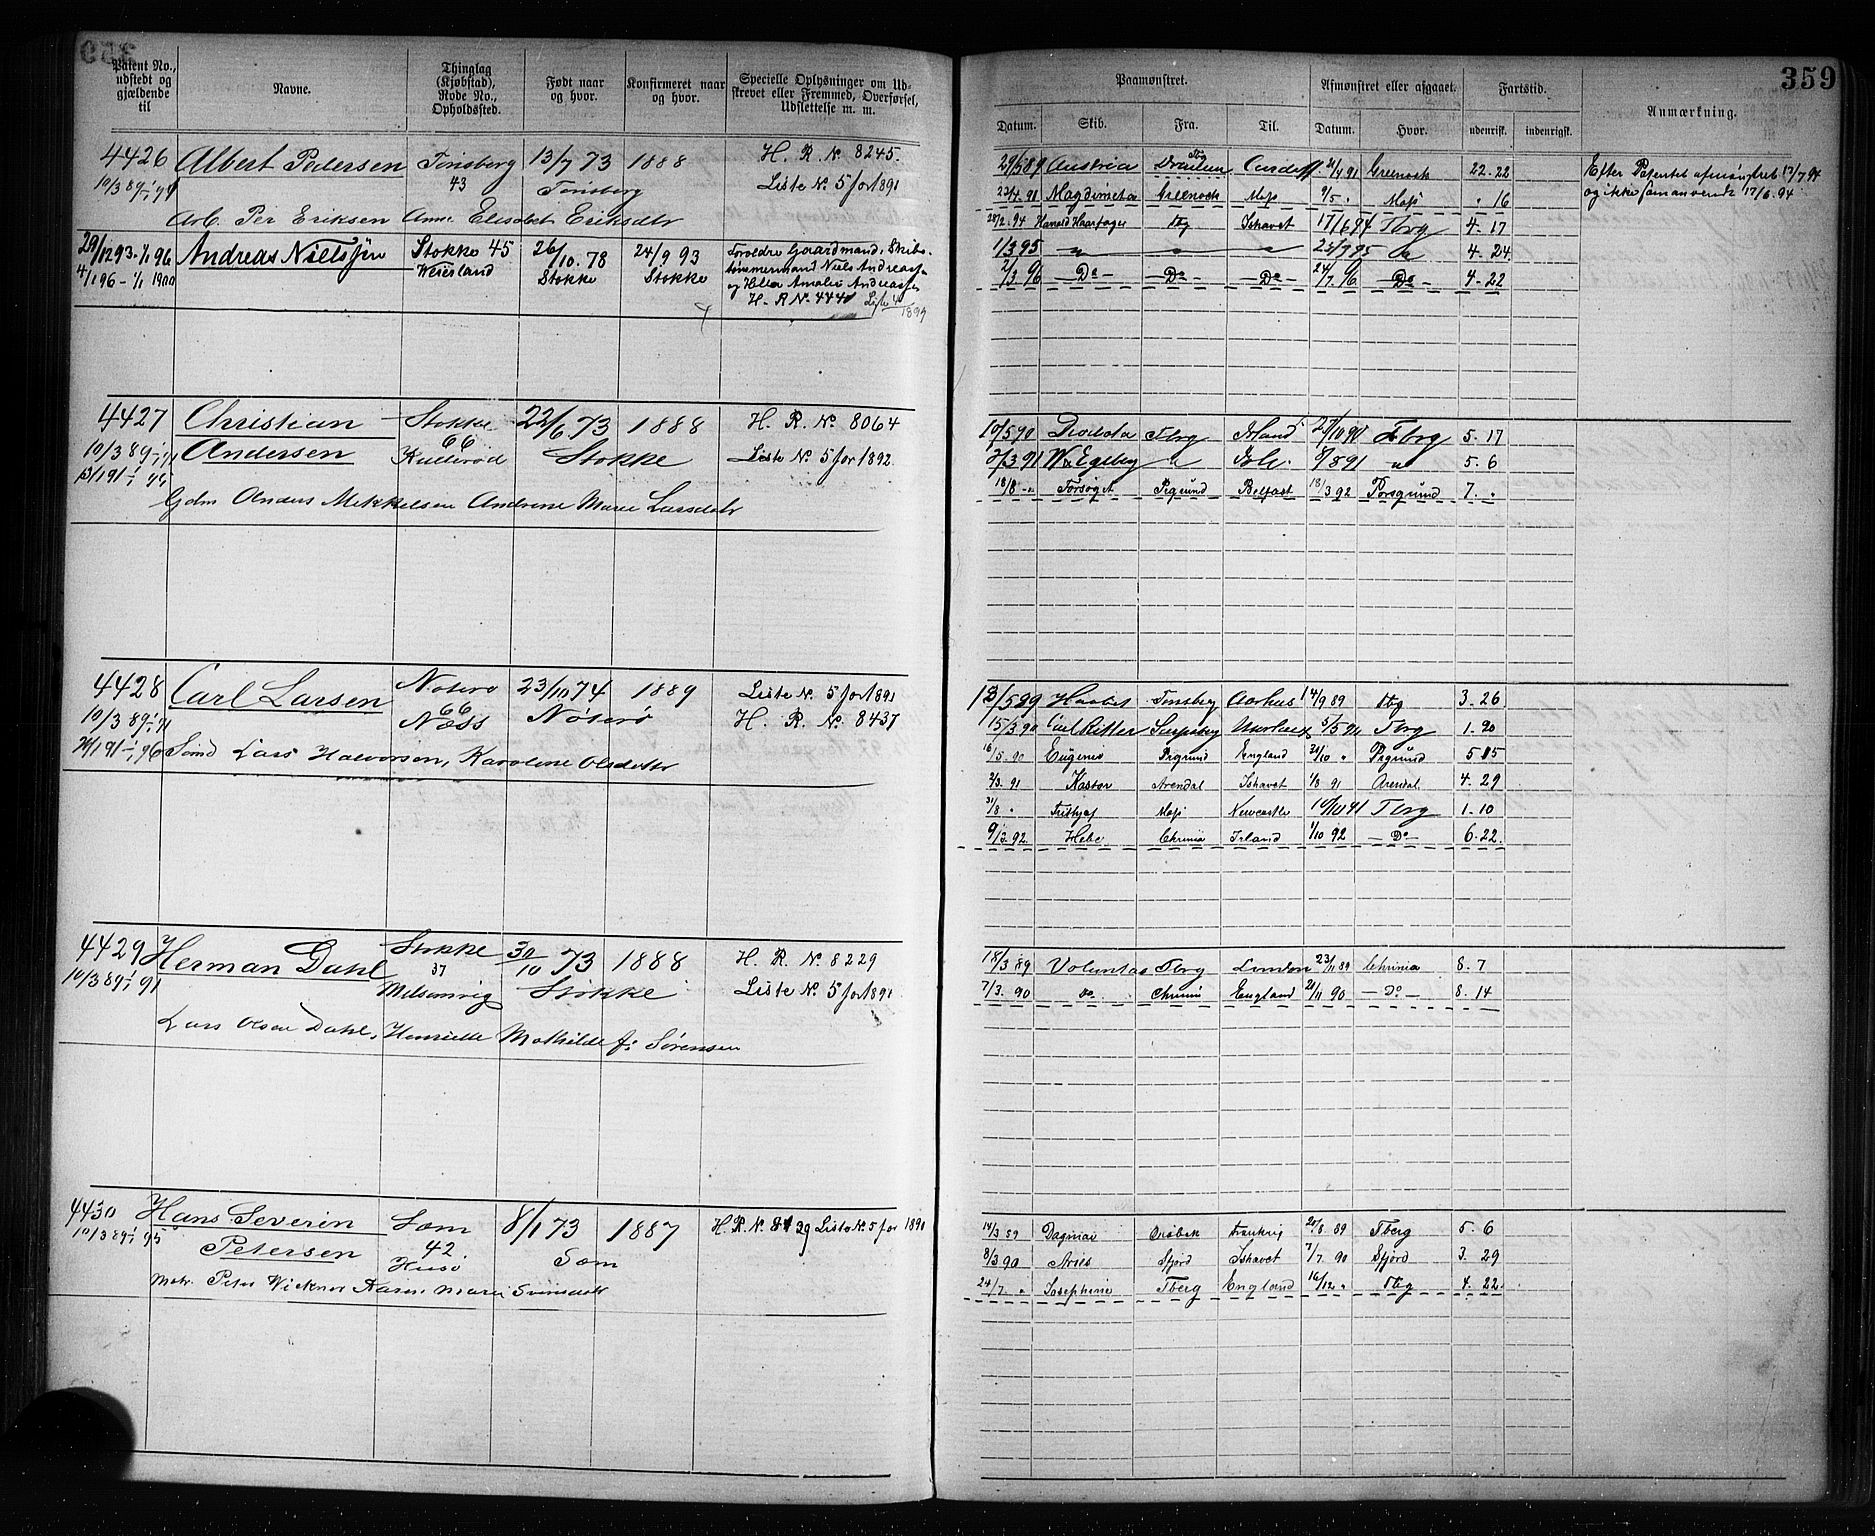 359
Patent No., udstedt og gjældende til
Navne.
Thinglag (Kjøbstad), Rode No., Opholdssted.
Født naar og hvor.
Konfirmeret naar og hvor.
Specielle Oplysninger om Udskrevet eller Fremmed, Overførsel, Udslettelse m. m.
Paamønstret.
Afmønstret eller afgaaet.
Fartstid.
Anmærkning.
Datum. Skib. Fra. Til. Datum. Hvor. udenrigsk. indenrigsk.
4426 Albert Pedersen Tønsberg 13/7 73 1888 H. R. No 8245.
10/3 89-1/1 94 43 Tønsberg Liste No 5 for 1891
Arb. Per Eriksen Anne Elisabet Eriksdtr
29/12 93-1/1 96 Andreas Nielssen Stokke 45 26/10. 78 24/9 93 Foreldre Gaardmand, Skibs-
4/1 96 - 1/1 1900 Stokke Stokke tømmermand Niels Andreass-
og Amalie Andreass
H. R No 444 Liste 4 1899
29/3 89 Austria Cardiff 21/4 91 Greenock 22-22
23/4. 91 Greenock Moss 9/5 Moss " 16
28/2. 94 Harald Haarfager Tbg Ishavet 17/6 94 Tbrg 4-17
1/3 95 " 4-24
2/3. 96 - Do - - Do - - Do - 24/7. 96 - Do - 4-22
Efter Patentet afmønstret 17/7 94
og ikke 17/6 94
4427 Christian Stokke 22/6 73 1888 H. R. No 8064
10/3 89-1/1 91 Andersen 66 Stokke Liste No 5 for 1892.
Gdm Anders Mikkelsen Andrine Marie Larsdatr
10/5 90 Tbrg Island 27/10 90 Tbrg 5. 17
2/3 91 W. Egeberg " 8/8 91 " 5. 6
18/8 - " Forsøget Prgrund Belfast 18/3 92 Porsgrund 7. "
4428 Carl Larsen Nøterø 23/10 74 1889 Liste No 5 for 1891
10/3 89-1/1 91 66 Næss Nøterø H. R. No 8437
Lars Halvorsen, Karoline Olsdatr
13/5 89 Haabet Tønsberg Aarhus 14/9 89 Tbg 3-26
15/3 90 Carl Ritter 5/5 90 Tbrg 1. 20
16/5. 90 Eugenie Prgrund England 21/10 " Prgrund
2/3. 91 Kastor Arendal Ishavet 1/8 91 Arendal 4. 29
31/8 " Frithjof Moss Newcastle 10/10 91 Tbrg 1. 10
9/3. 92. Hebe Chrnia Irland 1/10 92 - Do - 6. 22.
4429 Herman Dahl Stokke 30/10 73 1888 H. R. No 8229
10/3 89-1/1 91 37 Melsomvig Stokke Liste No 5 for 1891
Lars Olsen Dahl, Henriette Mathilde f: Sørensen
18/3 89 Voluntas Tbrg London 23/11 89 Chrnia 8. 7
7/3. 90 do. Chrnia England 21/11 90 - Do - 8. 14
4430 Hans Severin Sæm 8/1 73 1887 H. R. No 8139 Liste No 5 for 1891
10/3 89-1/1 95 Petersen 42. Husø Sæm
Matr. Peter Karen Marie
14/3 89 Dagmar Frankrig 20/8. 89 Tberg 5. 6
8/3 90 Aries Sfjord Ishavet 7/7. 90 Sfjord 3. 29
24/7. " Josephine Tberg England 16/12 " Tbg 4. 22.